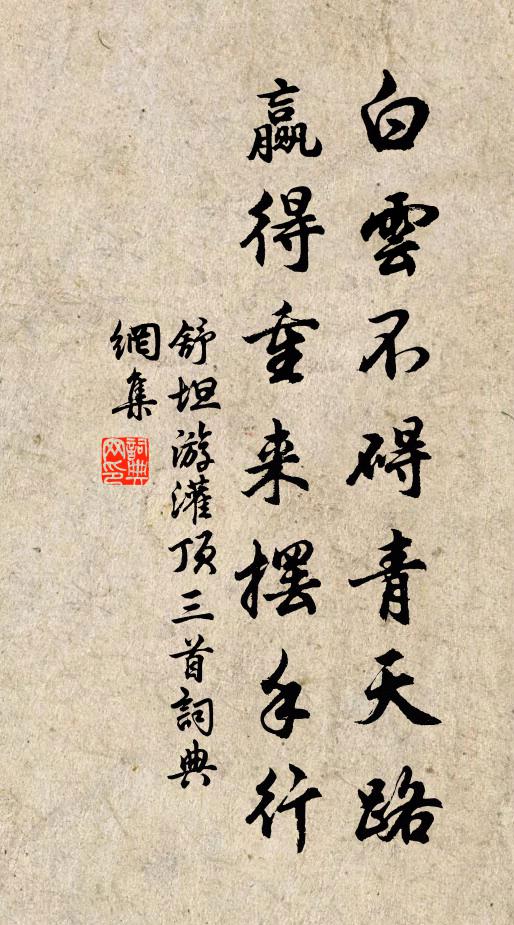 白雲不碍青天路
赢得重来摆手行
舒坦游灌顶三首詞典
網集
詞典網印